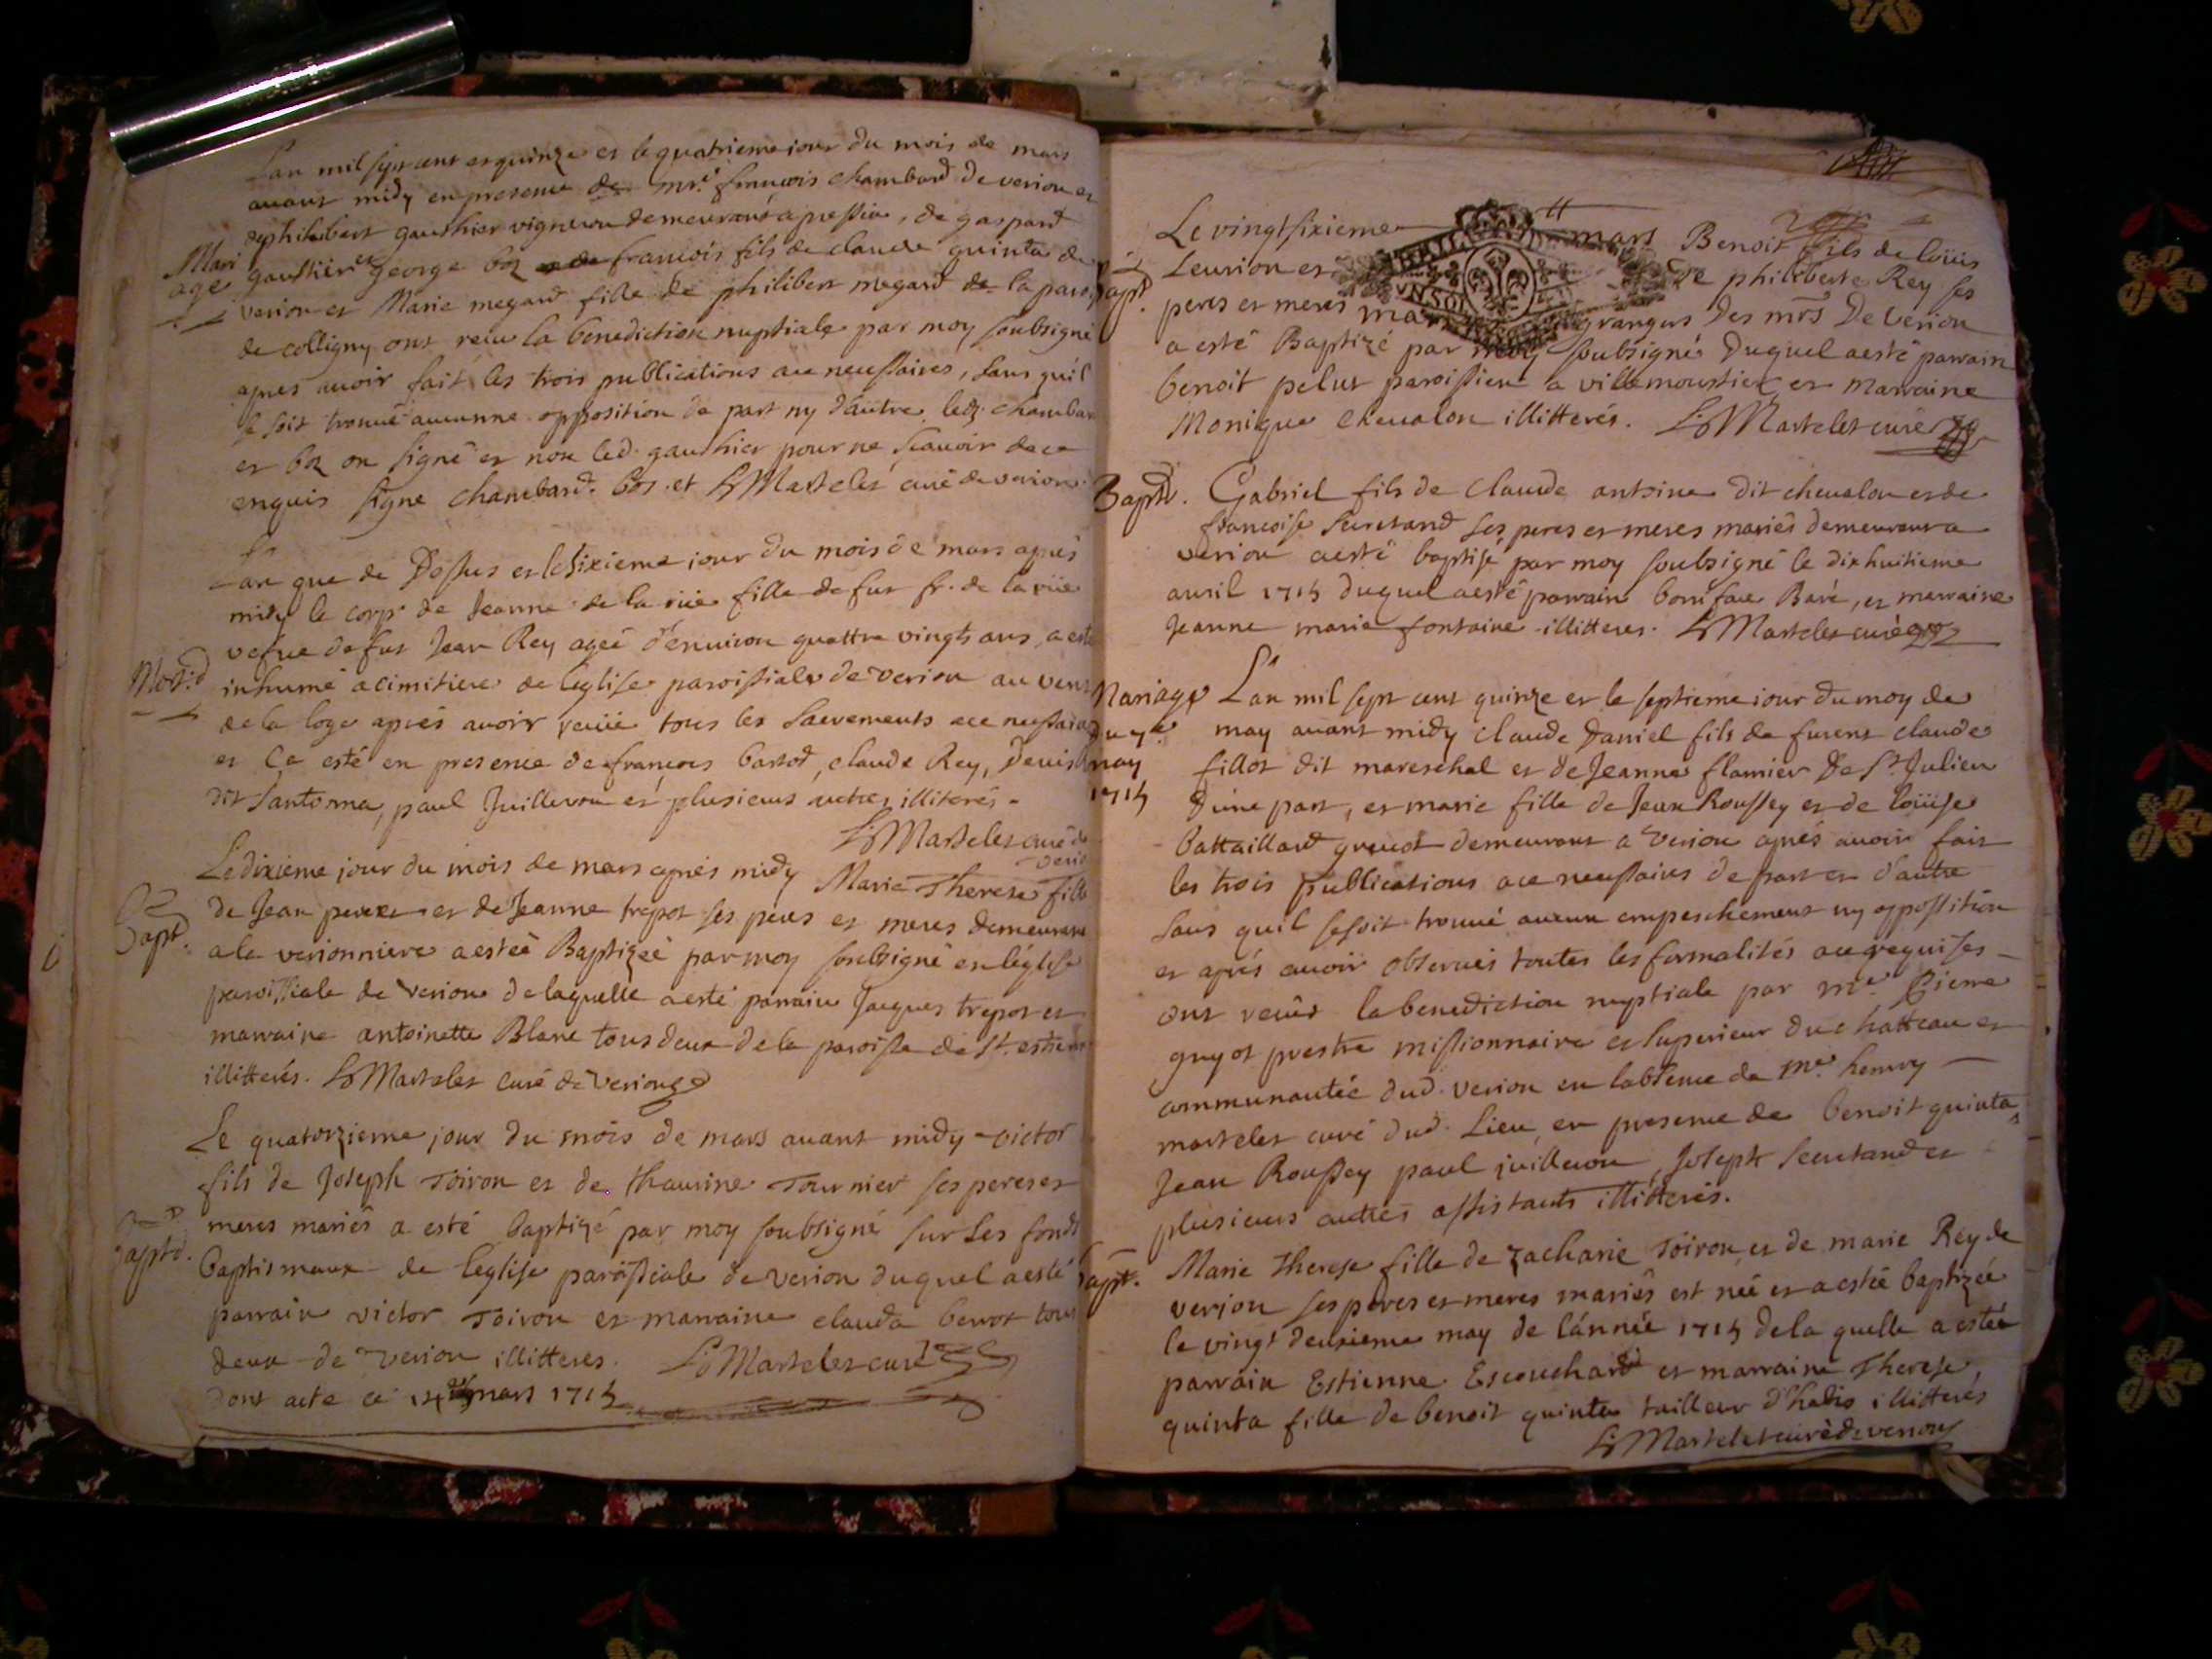 Lan mil sept cent et quinze et le quatrieme jour du mois de mars
avant midy en presence de mre. francois chambard de verion et
de philibert gauthier vigneron demeurans a pressia, de gaspard
Mari
age
gauthier et george boz francois fils de claude quinta de
verion et Marie megard fille de philibert megard de la paro
de colligny ont receu la benediction nuptiale par moy soubsigné
apres avoir fait les trois publications ace necessaires, sans quil
se soit trouué aucunne opposition de part ny d'autre led. chambar
et boz on signé et non led. gauthier pour ne scavoir de ce
enquis signe chambard. boz. et H Martelet curé de verion
Lan que de Dessus et le sixieme jour du mois de mars aprés
midy le corp de Jeanne de la rüe fille de fut fr. de la rüe
vefue de fut Jean Rey ageé d'enuiron quattre vingts ans, a esté
Mort.
inhumé a cimitiere de leglise paroissiale de verion au vent
de la loge aprés avoir receüe tous les sacrements ace necessaires
et ce esté en presence de françois bartod, claude Rey, Denis
dit Santoma, paul Juilleron et plusieurs autres illiterés.
H Martelet curé de
verio
Le dixieme jour du mois de mars aprés midy Marie Therese fille
Bapt.
de Jean et de Jeanne trepot ses peres et meres demeurans
a la verionniere a estéé Baptizéé par moy soubsigné en léglise
paroissiale de Verion de laquelle a esté parrain Jacques trepot et
marraine antoinette Blanc tous deux de la paroisse de St. estienne
illitterés. H Martelet curé de Verion
Le quatorzieme jour du mois de mars avant midy victor
fils de Joseph Toiron et de thaurine Tournier ses peres et
meres mariés a esté baptizé par moy soubsigné sur les fonds
Bapte.
baptismaux de leglise paroissiale de verion duquel a esté
parrain victor Toiron et marraine clauda benot tous
deux de Verion illitteres. H Martelet curé
dont acte ce 14 mars 1715
Le vingt sixieme mars Benoit fils de loüis
Bapt.
Leurion et de philiberte Rey ses
peres et meres mar grangers des mrs De Verion
a esté Baptizé par moy soubsigné Duquel a esté parrain
benoit pelut paroissien a villemoustier et marraine
Monique chevalon illitterés. H Martelet curé
Bapte. Gabriel fils de claude antoine dit chevalon et de
francoise Secretand ses peres et meres mariés demeurens a
verion a esté baptisé par moy soubsigné le dixhuitieme
avril 1715 duquel a esté parrain boniface Baré, et marraine
Jeanne marie fontaine illitteres. H Martelet curé
Mariage
du 7e
may
1715
Lan mil sept cent quinze et le septieme jour du moy de
may avant midy claude Daniel fils de furent claude
fillot dit mareschal et de Jeanne flamier De St. Julien
d'une part, et marie fille de Jean Roussey et de loüise
battaillard demeurans a Verion aprés avoir fait
les trois publications ace necessaires de part et d'autre
sans quil se soit trouué aucun empeschement ny oppossition
et aprés avoir observeés toutes les formalités ace requises
ont receüs la benediction nuptiale par mre Pierre
guyot prestre missionnaire et superieur du chatteau et
communautéé dud. verion en labsence de mre henry
martelet curé dud. Lieu, en presence de benoit quinta
Jean Roussey paul juilleron, Joseph Secretand et
plusieurs autres assistants illitterés.
Bapt.
Marie therese fille de Zacharie Toiron et de marie Rey de
verjon ses peres et meres mariés est néé et a estéé baptizéé
le vingt deuxieme may de lánnéé 1715 de la quelle a estéé
parrain Estienne Escouchard et marraine Therese
quinta fille de benoit quinta tailleur d'habis illitterés
H Martelet curé de verion